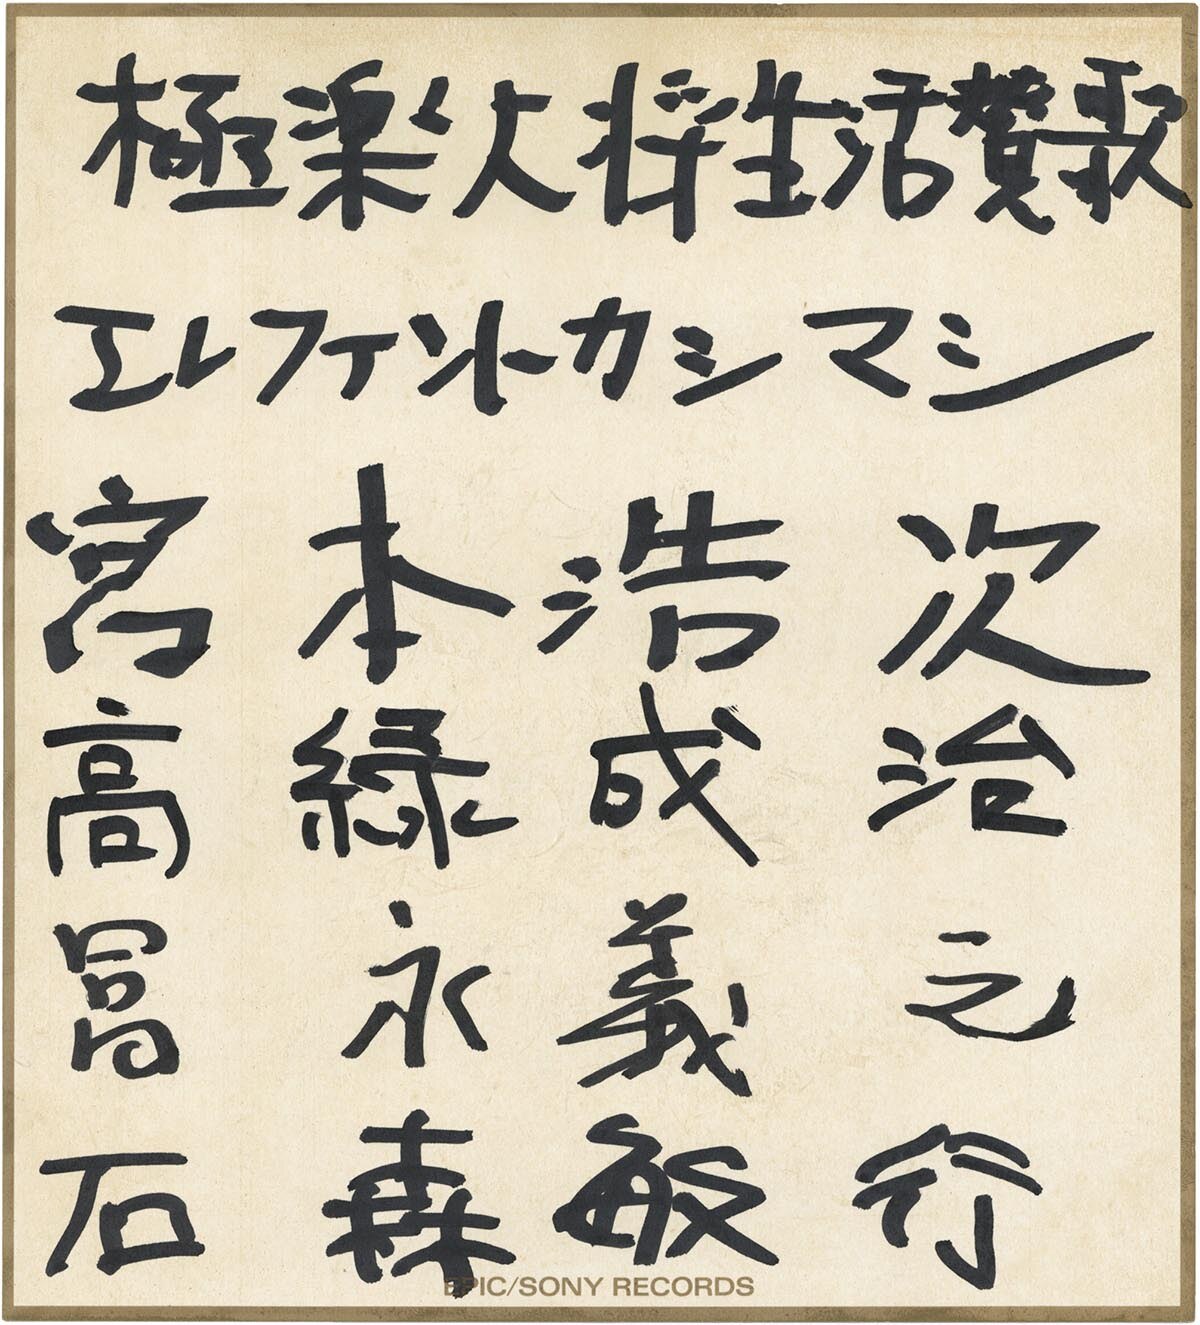 極楽大将生活賛歌
エレファントカシマシ
宮本浩次
高緑成治
冨永義之
石森敏行
EPIC/SONY RECORDS